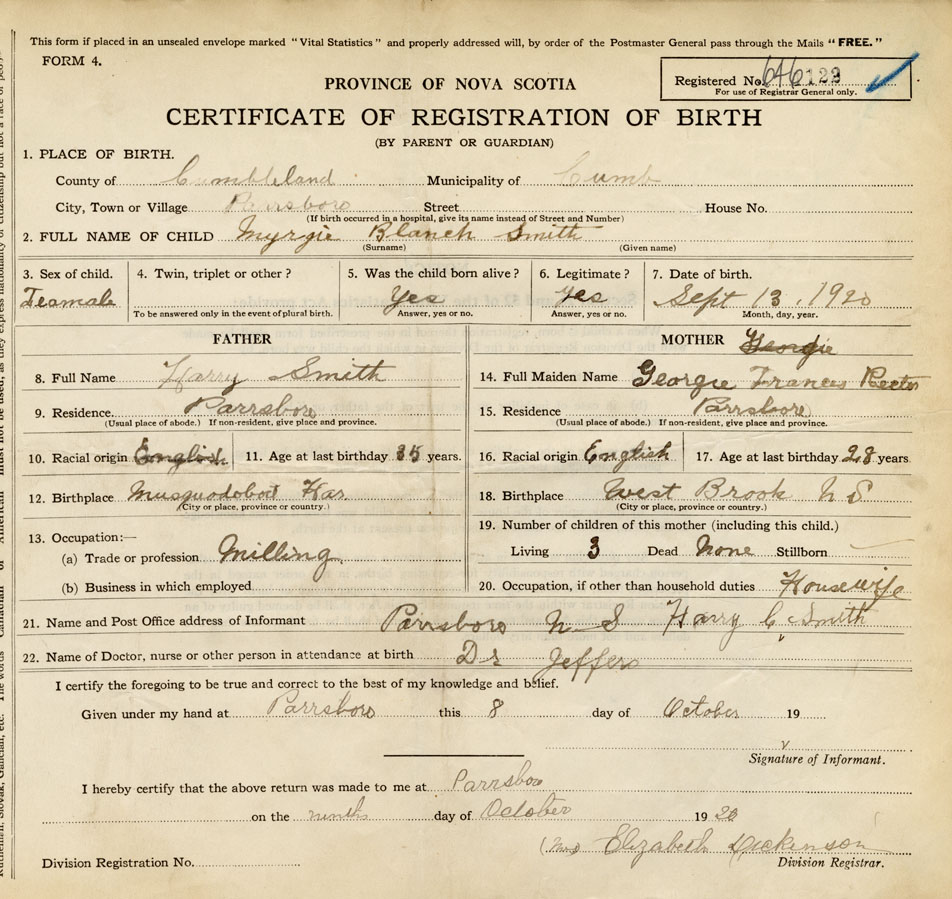 This form if placed in an unsealed envelope marked "Vital Statistics" and properly addressed will, by order of the Postmaster General pass through the Mails "FREE."
FORM 4.
Registered No. 646129
For use of Registrar General only.
PROVINCE OF NOVA SCOTIA
CERTIFICATE OF REGISTRATION OF BIRTH
(BY PARENT OR GUARDIAN)
1. PLACE OF BIRTH.
County of Cumbleland Municipality of Cumb
City, Town or Village Parrsboro Street House No.
(If birth occurred in a hospital, give its name instead of Street and Number)
2. FULL NAME OF CHILD Myrgie Blanch Smith
(Surname) (Given name)
3. Sex of child. 4. Twin, triplet or other? 5. Was the child born alive? 6. Legitimate? 7. Date of birth.
Feamale Yes Yes Sept 13, 1920
To be answered only in the event of plural birth. Answer, yes or no. Answer, yes or no. Month, day, year.
FATHER MOTHER Georgie
8. Full Name Harry Smith 14. Full Maiden Name Georgie Frances Rector
9. Residence. Parrsboro 15. Residence Parrsboro
(Usual place of abode.) If non-resident, give place and province. (Usual place of abode.) If non-resident, give place and province.
10. Racial origin English 11. Age at last birthday 35 years. 16. Racial origin English 17. Age at last birthday 28 years.
12. Birthplace Musquodoboit Har 18. Birthplace West Brook N S
(City or place, province or country.) (City or place, province or country.)
13. Occupation:— 19. Number of children of this mother (including this child.)
(a) Trade or profession Milling Living 3 Dead None Stillborn
(b) Business in which employed 20. Occupation, if other than household duties Housewife
21. Name and Post Office address of Informant Parrsboro N S Harry C Smith
22. Name of Doctor, nurse or other person in attendance at birth Dr Jeffers
I certify the foregoing to be true and correct to the best of my knowledge and belief.
Given under my hand at Parrsboro this 8 day of October 19
Signature of Informant.
I hereby certify that the above return was made to me at Parrsboro
on the ninth day of October 1920
(Mrs Elizabeth Dickenson
Division Registration No. Division Registrar.